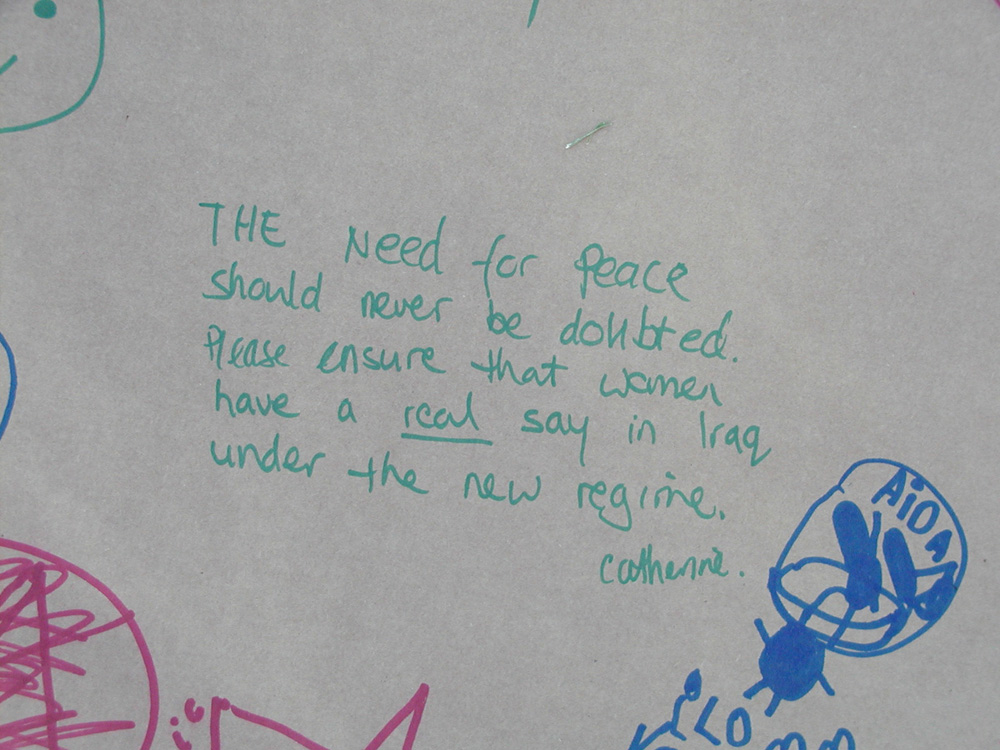 THE Need for Peace
should never be doubted.
Please ensure that women
have a real say in Iraq
under the new regime.
Catherine.
AiDA